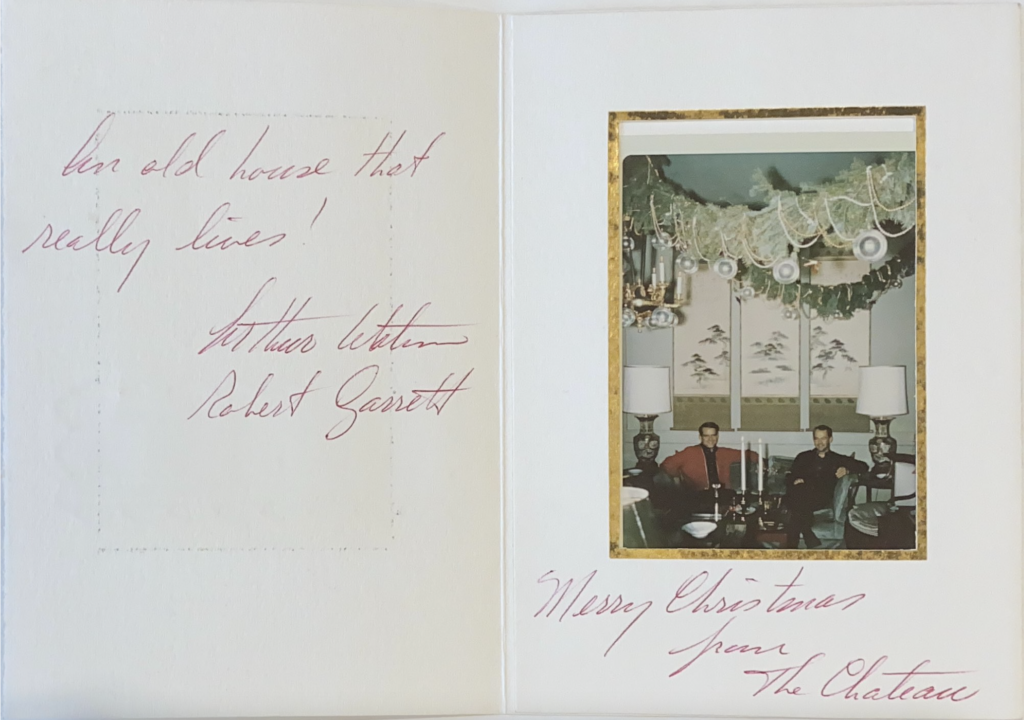 An old house that
really lives!
Arthur
Robert Garrett
Merry Christmas
from
The Chateau